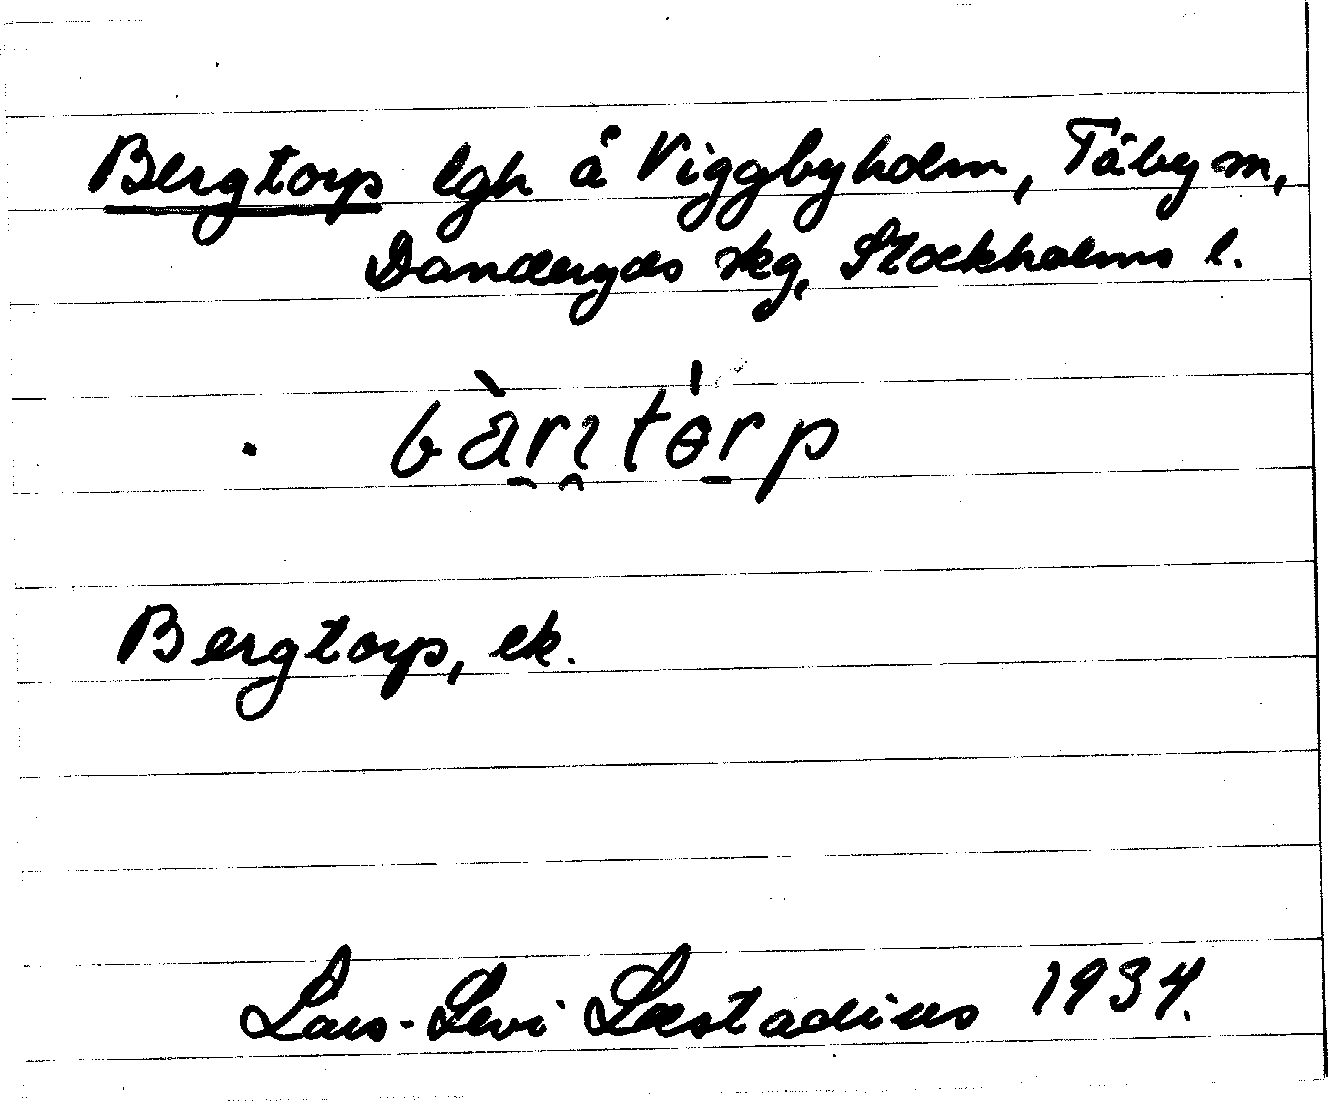 Bergtorp lgh å Viggbyholm, Täby sn,
Danderyds skg, Stockholms l.
bàrıtɵ́rp
Bergtorp, ek.
Lars-Levi Læstadius 1934.